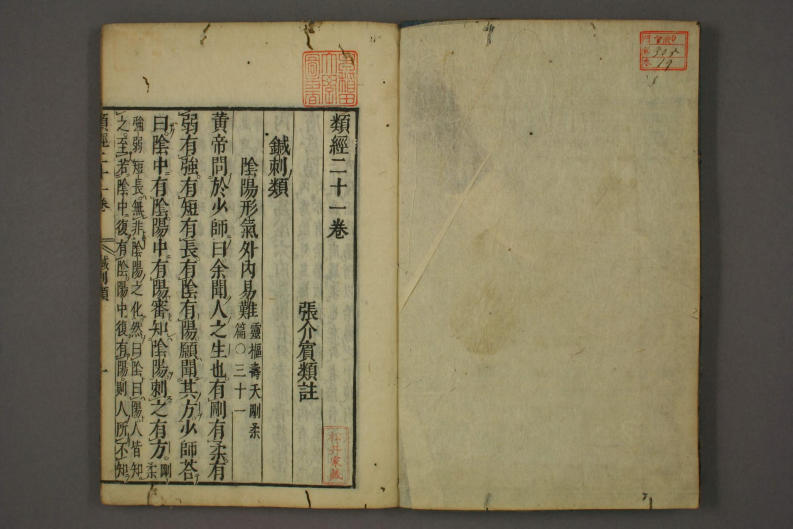 類經二十一卷
張介賓類註
鍼刺類
陰陽形氣外內易難
靈樞壽夭剛柔
篇○三十一
黄帝問於少師曰余聞人之生也有剛有柔有
弱有強有短有長有陰有陽願聞其方少師荅
曰陰中有陰陽中有陽審知陰陽刺之有方
剛
柔
強弱短長無非陰陽之化然曰陰曰陽人皆知
之至若陰中復有陰陽中復有陽則人所不知
類經二十一卷
鍼刺類
一